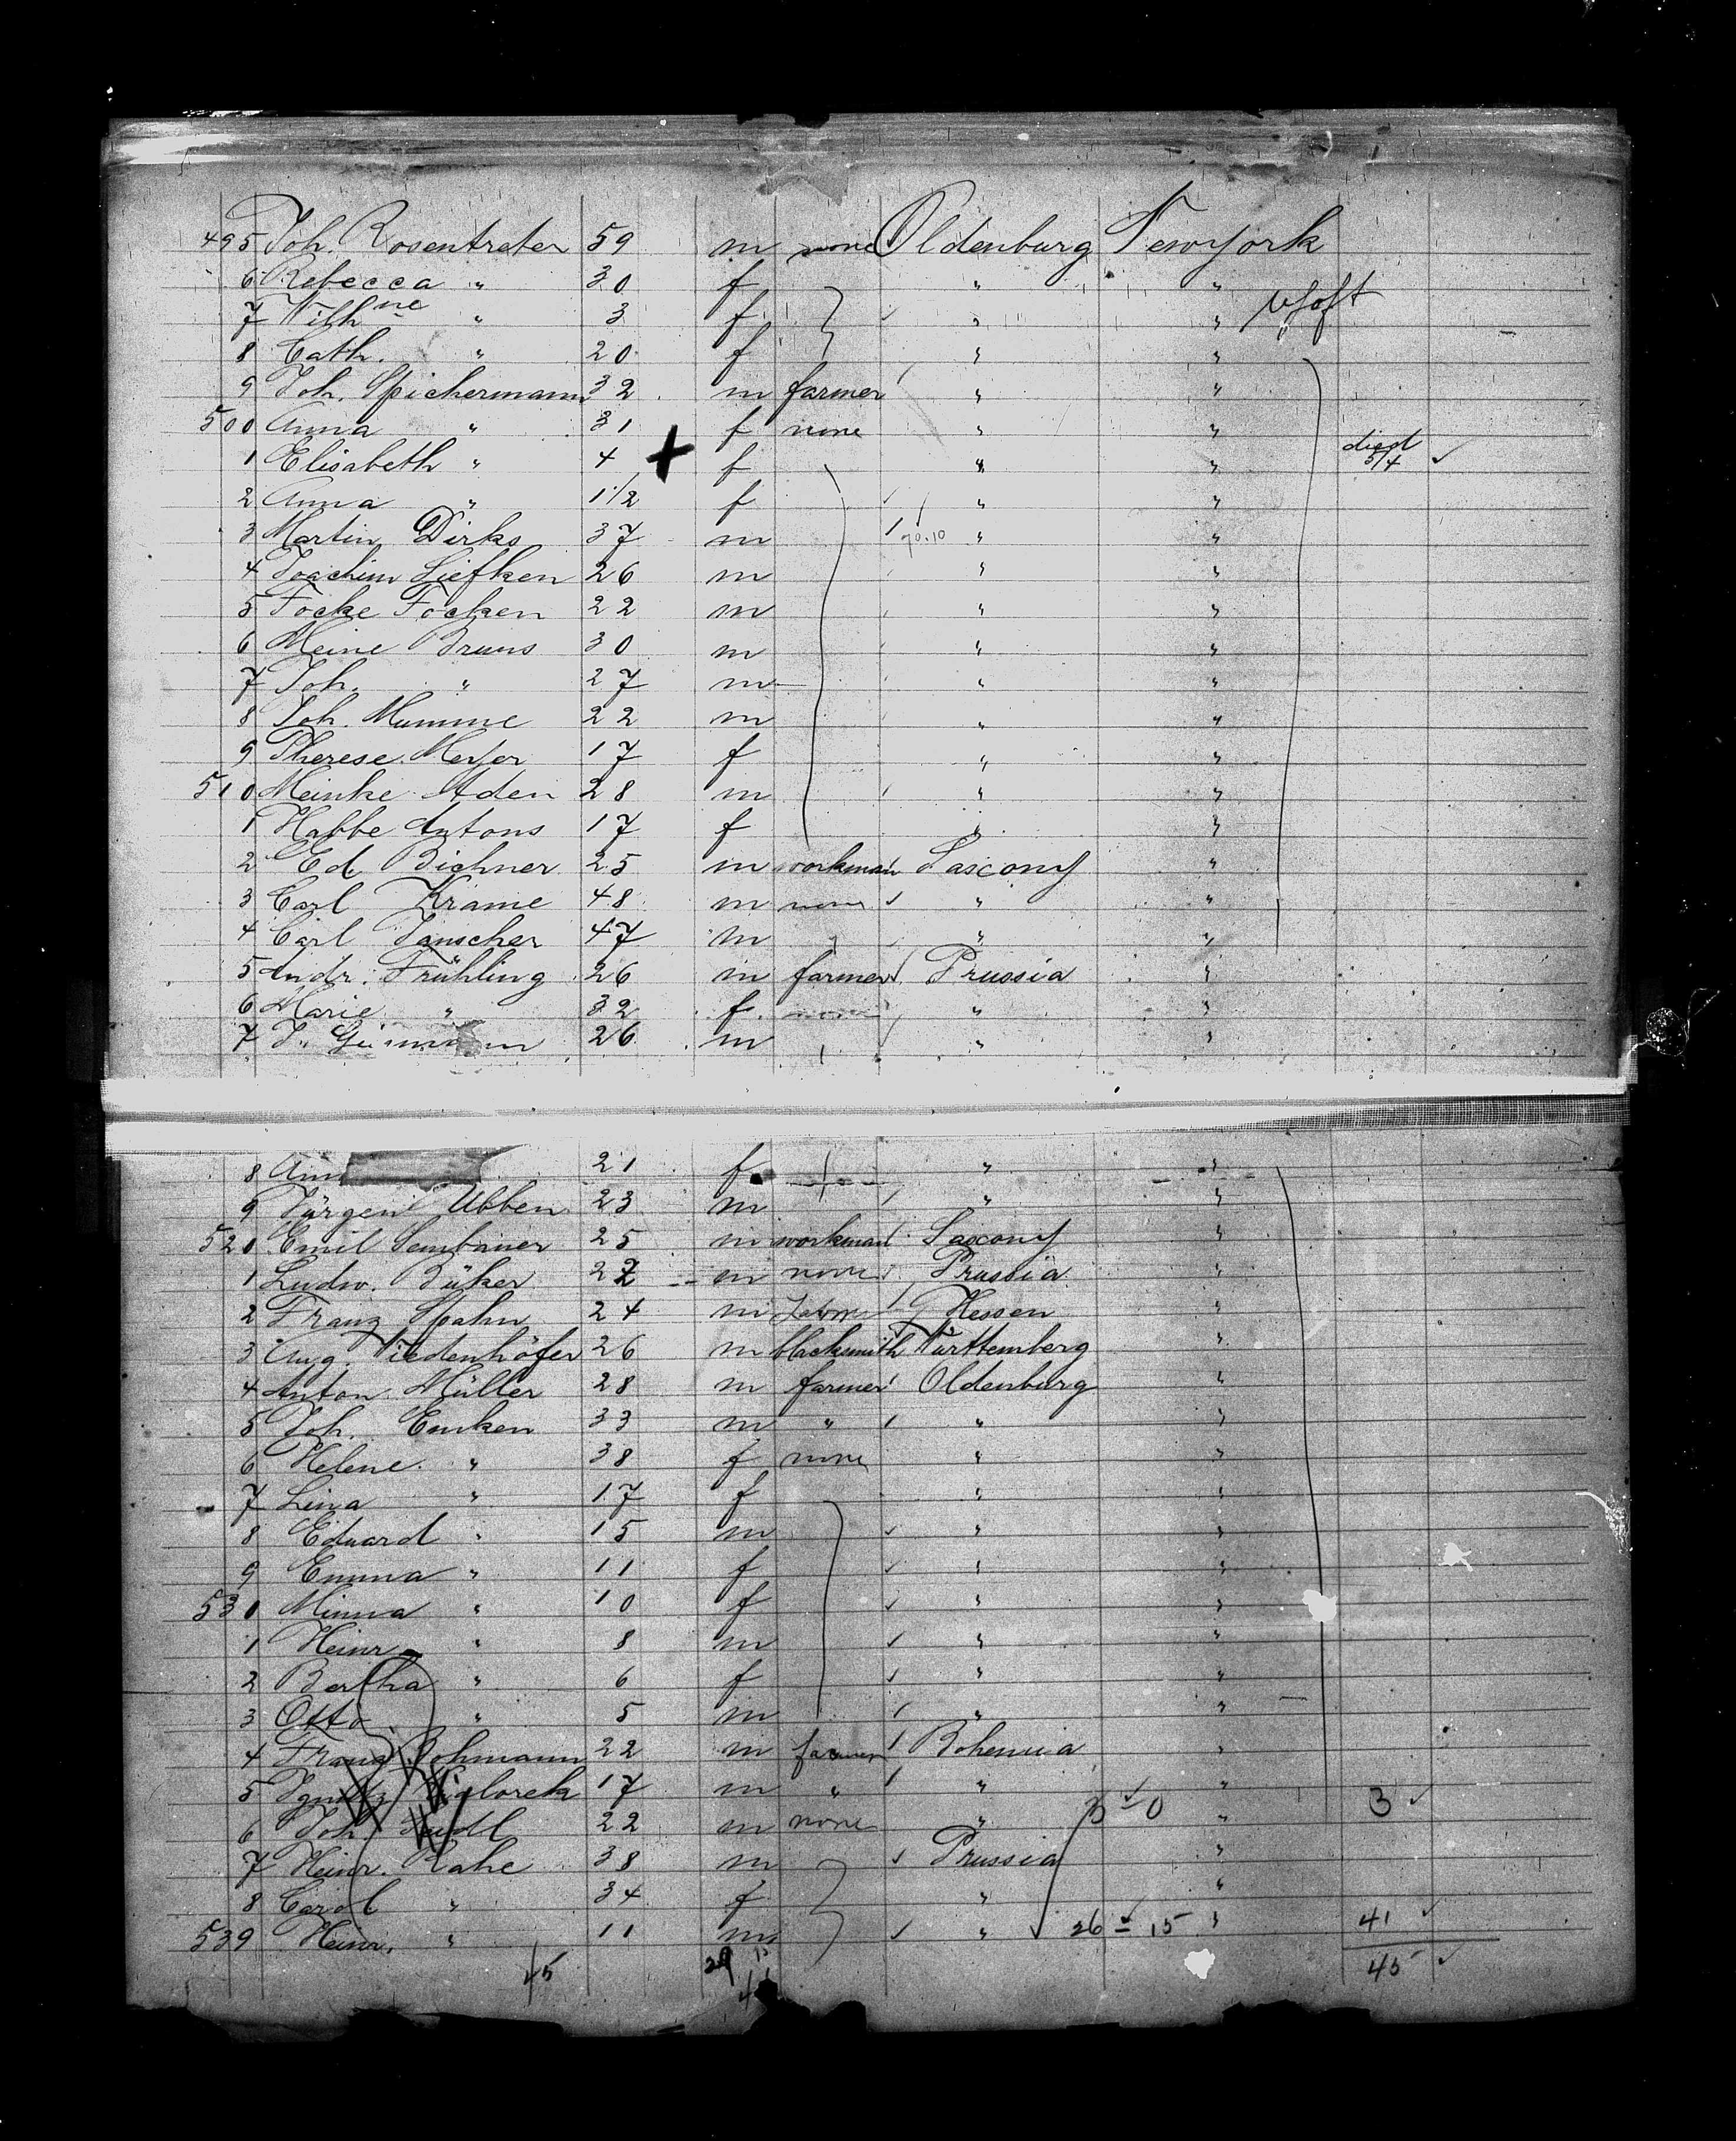 495 Joh. Rosentreter 59 m none Oldenburg New york
6 Rebecca " 30 f " "
7 Wilhne " 3 f " "
8 Cath. " 20 f " "
9 Joh. Spichermann 32 m farmer " "
500 Anna " 31 f none " "
1 Elisabeth " 4 + f " " died 5/4 ✓
2 Anna " 1 1/2 f " "
3 Martin Dirks 37 m " "
4 Joachim Liefken 26 m " "
5 Focke Focken 22 m " "
6 Meine Bruns 30 m " "
7 Joh. " 27 m " "
8 Joh. Mumme 22 m " "
9 Therese Meyer 17 f " "
510 Meinke Aden 28 m " "
1 Habbe Antons 17 f " "
2 Ed. Bichner 25 m workman Saxony "
3 Carl Krame 48 m none " "
4 Carl Janscher 47 m " "
5 Andr. Frühling 26 m farmer Prussia "
6 Marie " 32 f none " "
7 J. 26 m " "
8 21 f " "
9 Jürgen Ubben 23 m " "
520 Emil Sembauer 25 m workman Saxony "
1 Ludw. Büker 22 m none Prussia "
2 Franz Spahn 24 m Hessen "
3 Aug. Tiedenhöfer 26 m blacksmith Württemberg "
4 Anton Müller 28 m farmer Oldenburg "
5 Joh. Emken 33 m " " "
6 Helene " 38 f none " "
7 Lina " 17 f " "
8 Eduard " 15 m " "
9 Emma " 11 f " "
530 Minna " 10 f " "
1 Heinr. " 8 m " "
2 Bertha " 6 f " "
3 Otto " 5 m " "
4 Franz Bohmann 22 m farmer Bohemia "
5 Ignatz 17 m " " "
3 - 0 3 ✓
6 Joh. 22 m none " "
7 Heinr. Rahe 38 m Prussia "
8 Carol " 34 f " "
539 Heinr. " 11 m " 26 - 15 " 41 ✓
45 29 15 45 ✓